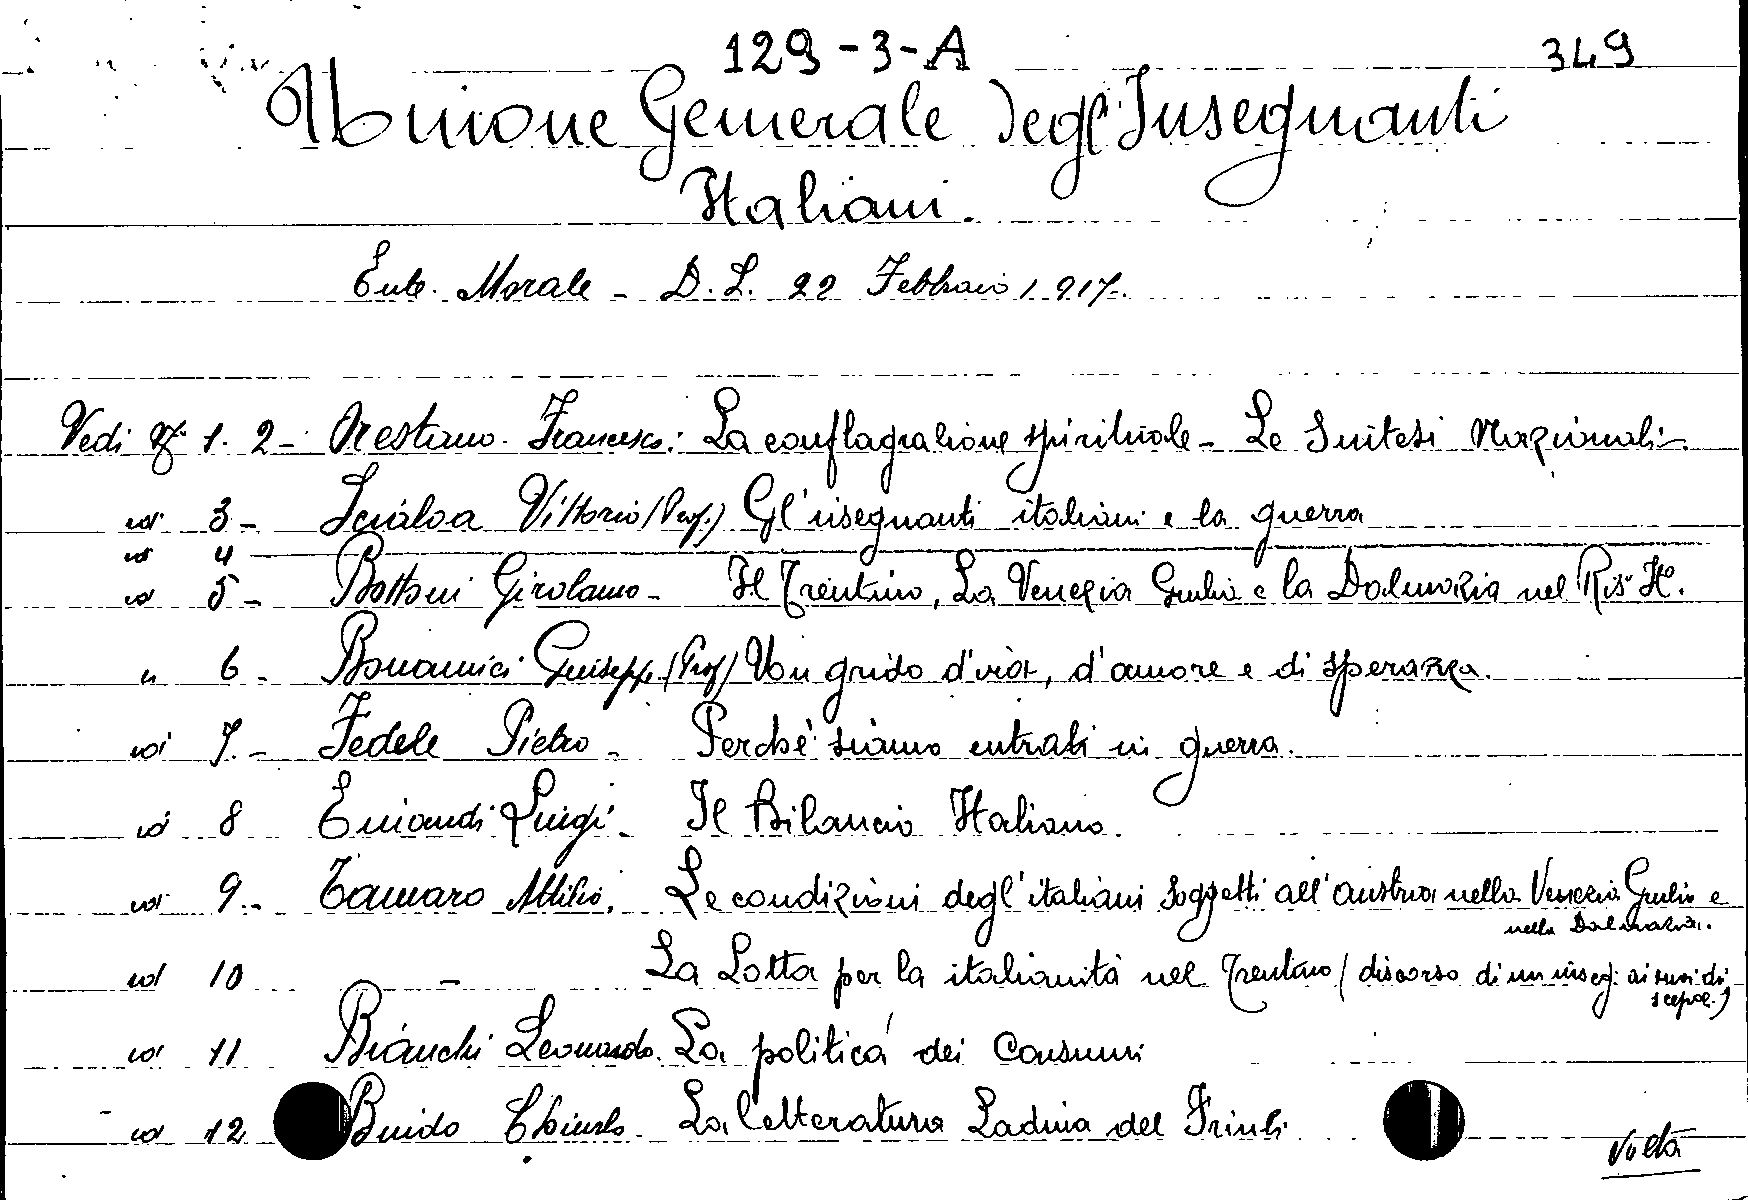 129-3-A
349
Unione Generale degl'Insegnanti
Italiani.
Ente. Morale - D. L. 22 Febbraio 1917.
Vedi N° 1. 2 - Orestano. Francesco: La conflagrazione spirituale - Le Sintesi Nazionali.
id 3 - Scialoa Vittorio (Prof.) Gl'insegnanti italiani e la guerra
id 4
id 5 - Bottoni Girolamo - Il Trentino, La Venezia Giulia e la Dalmazia nel Ris° It°.
" 6 - Bonamici Giuseppe (Prof) Un grido d'vita, d'amore e di speranza.
id 7. - Fedele Pietro - Perché siamo entrati in guerra.
id 8 Einaudi Luigi - Il Bilancio Italiano.
id 9. - Tamaro Attilio. Le condizioni degl'italiani soggetti all'austria nella Venezia Giulia e
nella Dalmazia.
id 10 - La Lotta per la italianità nel Trentino (discorso di un inseg. ai suoi di
scepol.)
id 11 Bianchi Leonardo. La politica dei Consumi
id 12 Guido Chiurlo. La letteratura Ladina del Friuli
Volta